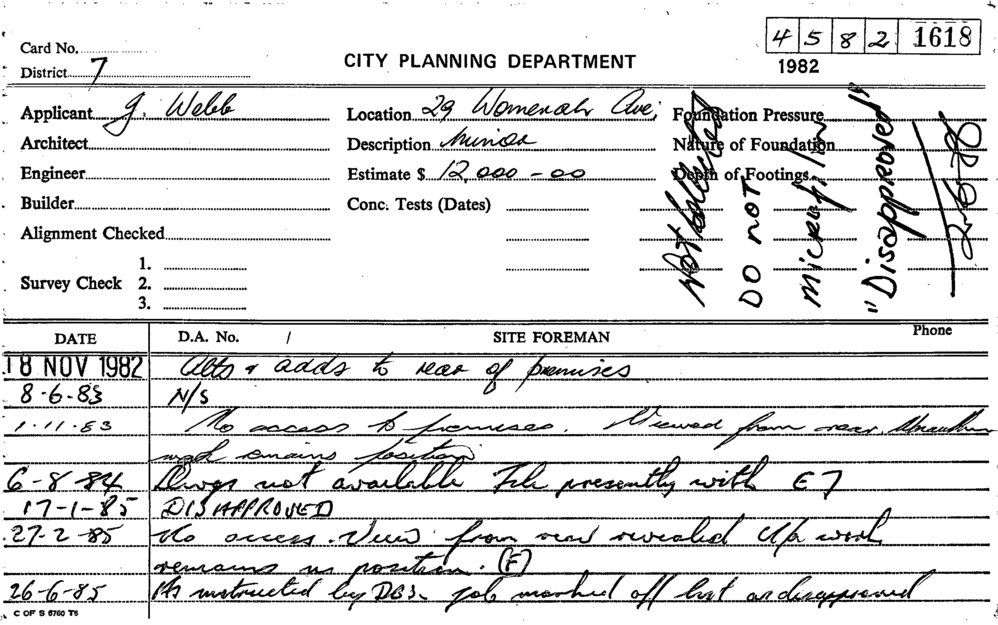 4 5 8 2 1618
1982
Card No.
District 7
CITY PLANNING DEPARTMENT
Applicant J. Webb
Location 29 Womerah Ave,
Foundation Pressure
Architect
Description Minor
Nature of Foundation
Engineer
Estimate $ 12,000-00
Depth of Footings
Builder
Conc. Tests (Dates)
Alignment Checked
Survey Check
1.
2.
3.
Not
DO NOT
Microfilm
"Disapproved"
DATE D.A. No. / SITE FOREMAN Phone
18 NOV 1982 Alts & adds to rear of premises
8-6-83 N/S
1-11-83 No access to premises. Viewed from rear.
work remains position
6-8-84 Dwgs not available File presently with E7
17-1-85 DISAPPROVED
27-2-85 No access. View from rear revealed U/A work
remains in position. (F)
26-6-85 As instructed by DBS. job marked off list as disapproved
C OF S 6760 T6